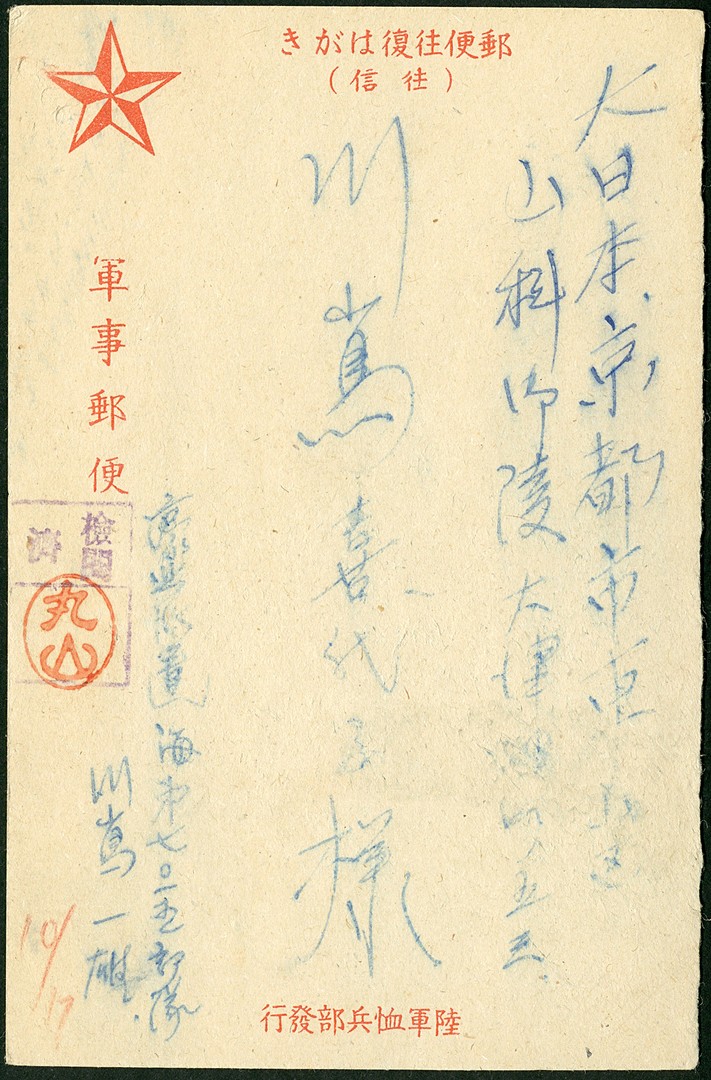 郵便往復はがき
(往信)
大日本京都市東山区
山科御陵大津
川嶌喜代子様
軍事郵便
檢閲
濟
丸山
海第七〇一五部隊
川嶌一雄
10/17
陸軍恤兵部發行